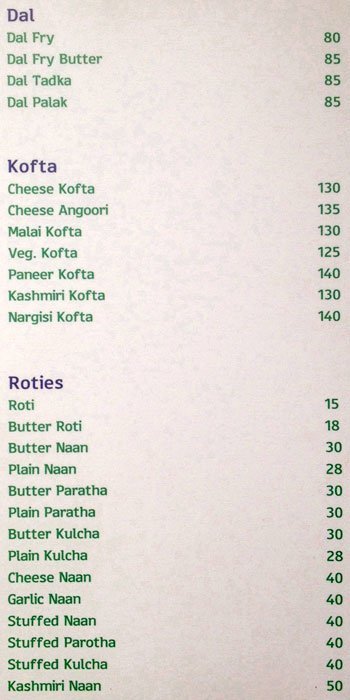 Dal
Dal Fry 80
Dal Fry Butter 85
Dal Tadka 85
Dal Palak 85
Kofta
Cheese Kofta 130
Cheese Angoori 135
Malai Kofta 130
Veg. Kofta 125
Paneer Kofta 140
Kashmiri Kofta 130
Nargisi Kofta 140
Roties
Roti 15
Butter Roti 18
Butter Naan 30
Plain Naan 28
Butter Paratha 30
Plain Paratha 30
Butter Kulcha 30
Plain Kulcha 28
Cheese Naan 40
Garlic Naan 40
Stuffed Naan 40
Stuffed Parotha 40
Stuffed Kulcha 40
Kashmiri Naan 50